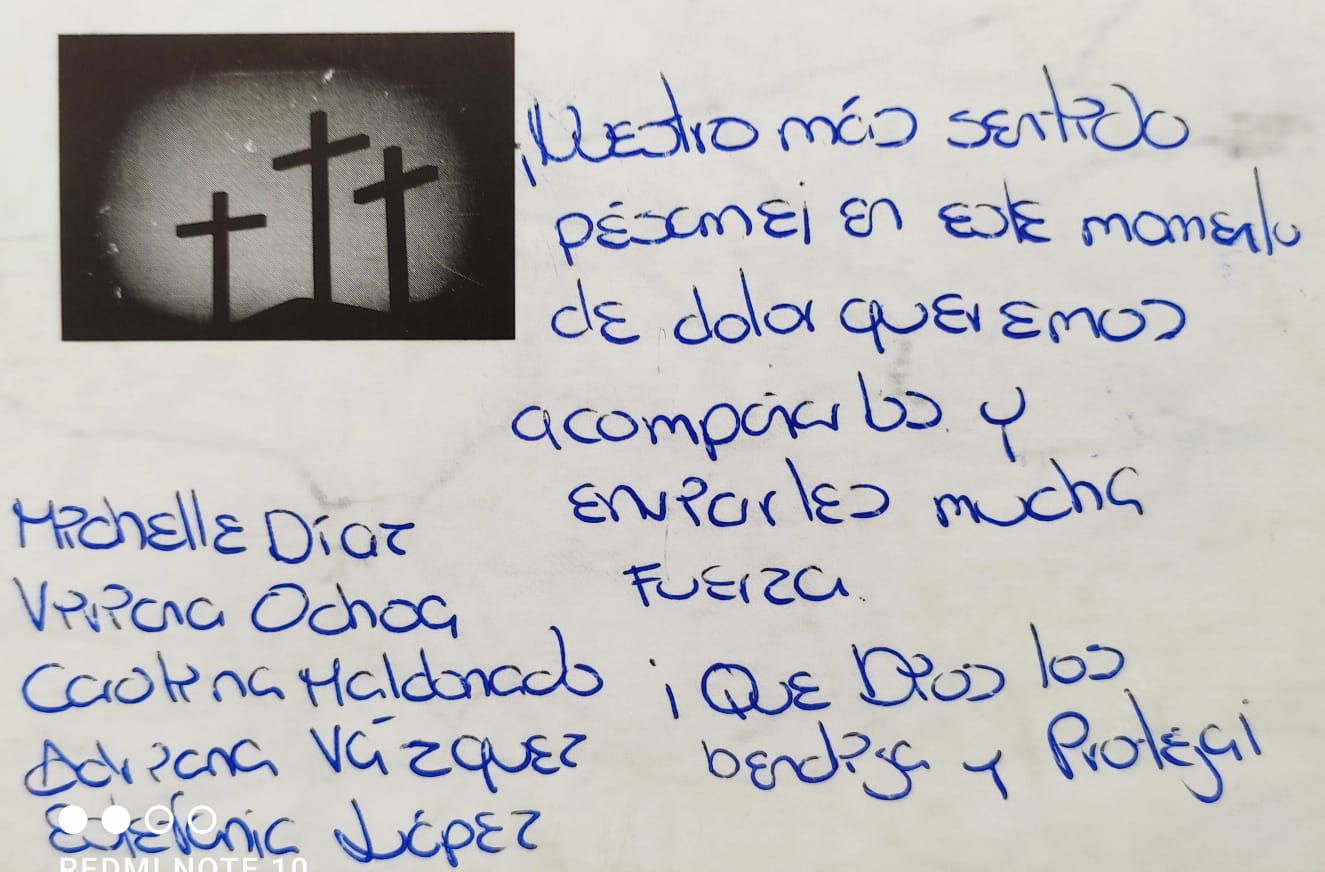 ¡Nuestro más sentido
pésame! en este momento
de dolor queremos
acompañarlos y
enviarles mucha
Fuerza.
¡Que Dios los
bendiga y Proteja!
Michelle Díaz
Viviana Ochoa
Carolina Maldonado
Adriana Vázquez
Estefania López
REDMI NOTE 10